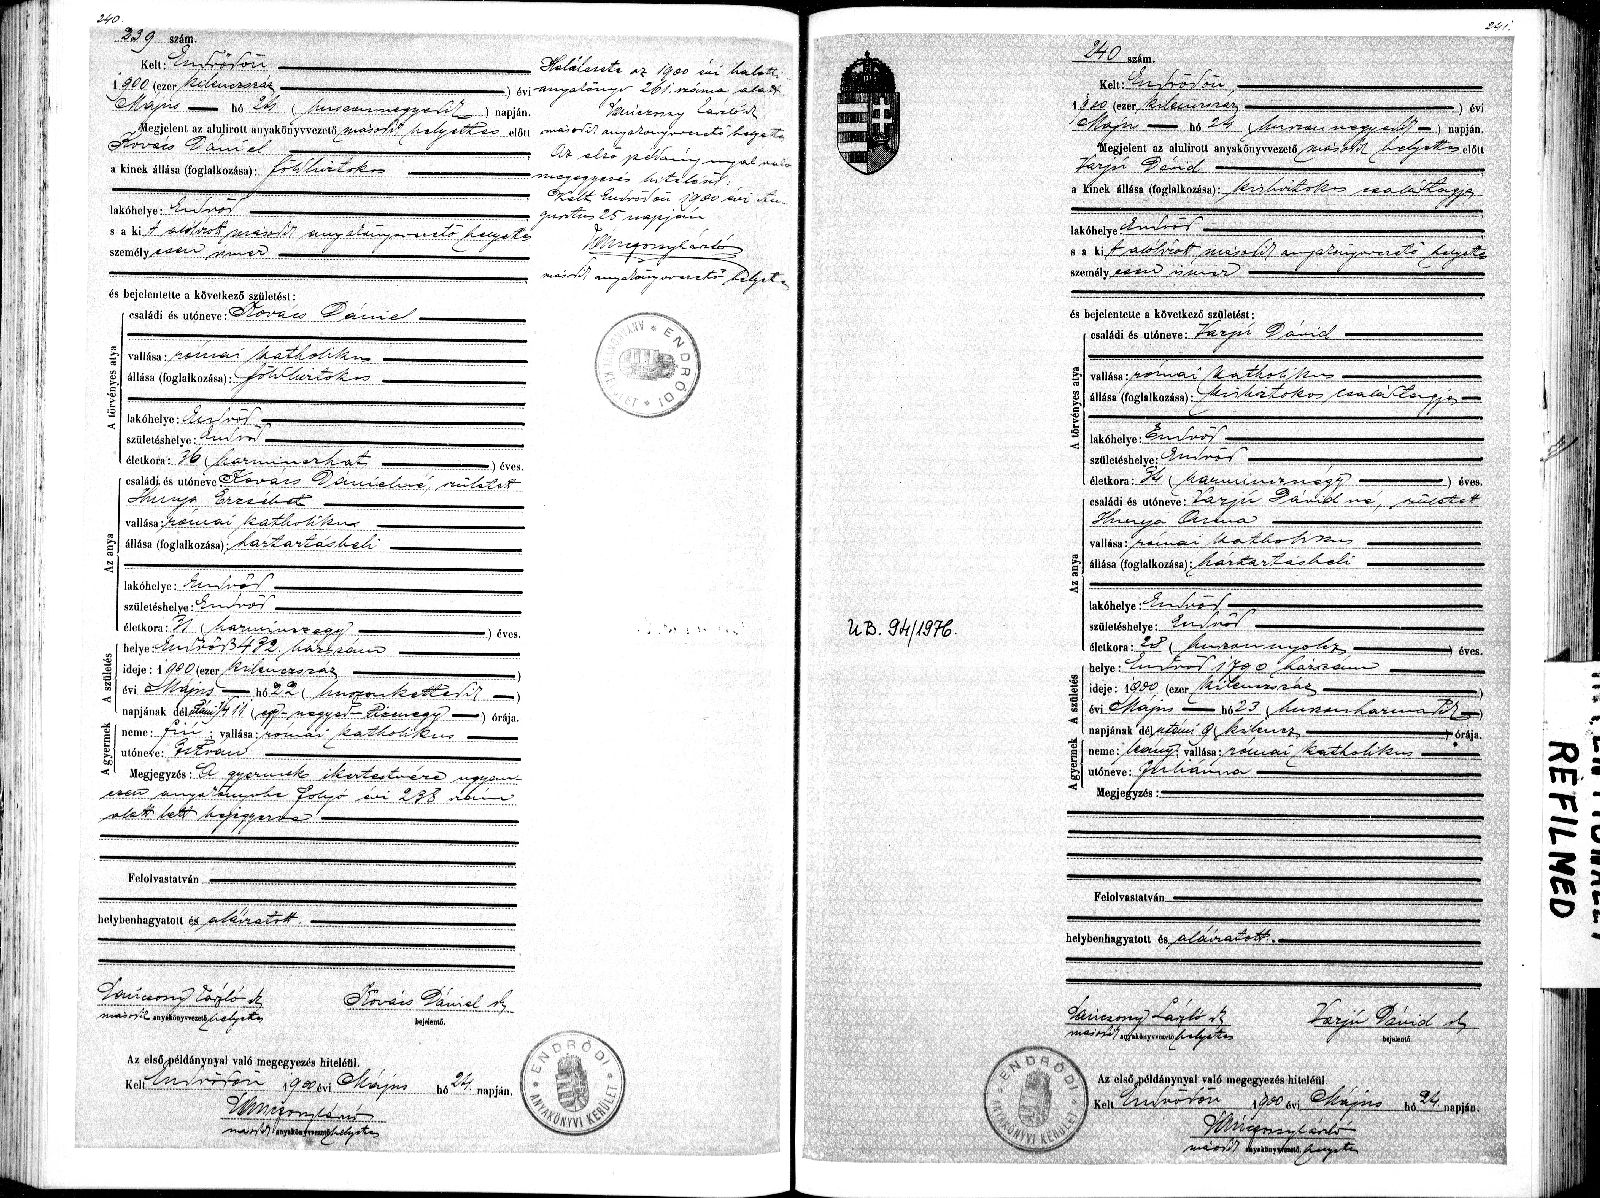 240.
239 szám.
Kelt: Endrődön
1900 (ezer kilenczszáz ) évi
Május hó 24 (huszonnegyedik) napján.
Megjelent az alulirott anyakönyvvezető második helyettes előtt
Kovács Dániel
a kinek állása (foglalkozása): földbirtokos
lakóhelye: Endrőd
s a ki t alólirott második anyakönyvvezető helyettes
személyesen ismer
és bejelentette a következő születést:
A törvényes atya
családi és utóneve: Kovács Dániel
vallása: római katholikus
állása (foglalkozása): földbirtokos
lakóhelye: Endrőd
születéshelye: Endrőd
életkora: 36 (harminczhat ) éves.
Az anya
családi és utóneve Kovács Dánielné, született
Hunya Erzsébet
vallása: római katholikus
állása (foglalkozása): háztartásbeli
lakóhelye: Endrőd
születéshelye: Endrőd
életkora: 31 (harminczegy ) éves.
A születés
helye: Endrőd 432 házszám
ideje: 1900 (ezer kilenczszáz )
évi Május hó 22 (huszonkettedik )
napjának dél 11 ( ) órája.
A gyermek
neme: fiú; vallása: római katholikus
utóneve: István
Megjegyzés: A gyermek ikertestvére ugyan-
ezen anyakönyvbe folyó évi 238 szám
alatt lett bejegyezve.
Felolvastatván
helybenhagyatott és aláiratott.
László sk
második anyakönyvvezető helyettes
Kovács Dániel sk
bejelentő.
Az első példánynyal való megegyezés hiteléül.
Kelt Endrődön 1900 évi Május hó 24 napján.
második anyakönyvvezető helyettes
ENDRŐDI ANYAKÖNYVI KERÜLET
Halálesete az 1900 évi halotti
anyakönyv 261 száma alatt
László sk
második anyakönyvvezető helyettes
Az első példánynyal való
megegyezés hiteléül.
Kelt Endrődön 1900 évi Au-
gusztus 25 napján
második anyakönyvvezető helyettes
ENDRŐDI ANYAKÖNYVI KERÜLET
241.
240 szám.
Kelt: Endrődön,
1900 (ezer kilenczszáz ) évi
Május hó 24 (huszonnegyedik ) napján.
Megjelent az alulirott anyakönyvvezető második helyettes előtt
Varjú Dávid
a kinek állása (foglalkozása): kisbirtokos családtagja
lakóhelye: Endrőd
s a ki t alólirott második anyakönyvvezető helyettes
személyesen ismer
és bejelentette a következő születést:
A törvényes atya
családi és utóneve: Varjú Dávid
vallása: római katholikus
állása (foglalkozása): kisbirtokos családtagja
lakóhelye: Endrőd
születéshelye: Endrőd
életkora: 34 (harmincznégy ) éves.
Az anya
családi és utóneve: Varjú Dávidné, született
Hunya Anna
vallása: római katholikus
állása (foglalkozása): háztartásbeli
lakóhelye: Endrőd
születéshelye: Endrőd
életkora: 28 (huszonnyolcz ) éves.
A születés
helye: Endrőd 1790 házszám
ideje: 1900 (ezer kilenczszáz )
évi Május hó 23 (huszonharmadik )
napjának délutáni 9 (kilencz ) órája.
A gyermek
neme: leány; vallása: római katholikus
utóneve: Juliánna
Megjegyzés:
Felolvastatván
helybenhagyatott és aláiratott.
László sk
második anyakönyvvezető helyettes
Varjú Dávid sk
bejelentő
Az első példánynyal való megegyezés hiteléül
Kelt Endrődön 1900 évi Május hó 24 napján.
második anyakönyvvezető helyettes
ENDRŐDI ANYAKÖNYVI KERÜLET
U.B. 94/1976.
REFILMED